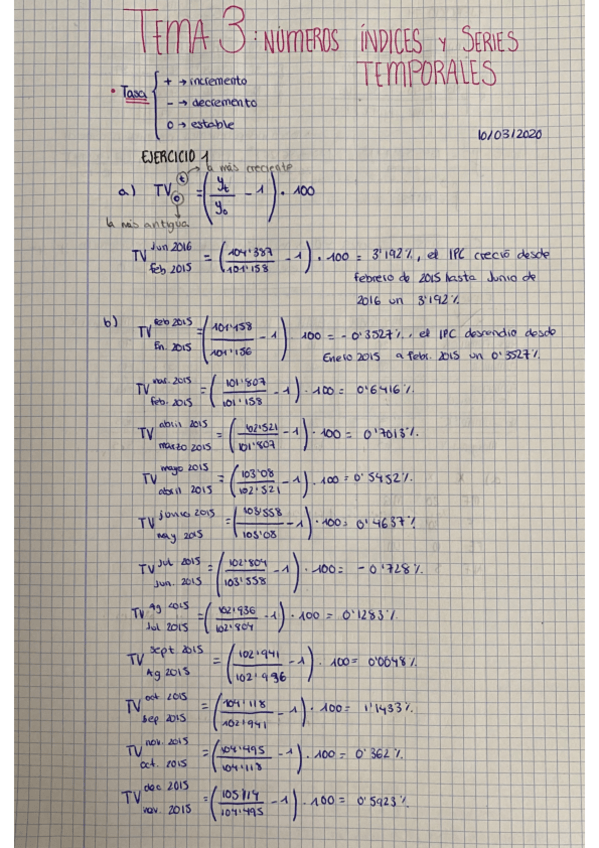 TEMA 3: NÚMEROS ÍNDICES Y SERIES
TEMPORALES
• Tasa { + → incremento
- → decremento
0 → estable
10/03/2020
EJERCICIO 1
la más creciente
a) TV t 0 = (yt / y0 - 1) · 100
la más antigua
TV Jun 2016 feb 2015 = (104'387 / 101'158 - 1) · 100 = 3'192%, el IPC creció desde
febrero de 2015 hasta Junio de
2016 un 3'192%
b) TV feb 2015 En. 2015 = (101'158 / 101'156 - 1) 100 = - 0'3527%, el IPC descendio desde
Enero 2015 a febr. 2015 un 0'3527%
TV mar. 2015 feb. 2015 = (101'807 / 101'158 - 1) · 100 = 0'6416%
TV abril 2015 marzo 2015 = (102'521 / 101'807 - 1) · 100 = 0'7013%
TV mayo 2015 abril 2015 = (103'08 / 102'521 - 1) · 100 = 0'5452%
TV junio 2015 may 2015 = (103'558 / 103'08 - 1) · 100 = 0'4637%
TV Jul 2015 Jun. 2015 = (102'804 / 103'558 - 1) · 100 = - 0'728%
TV Ag 2015 Jul 2015 = (102'936 / 102'804 - 1) · 100 = 0'1283%
TV Sept 2015 Ag 2015 = (102'941 / 102'936 - 1) · 100 = 0'0048%
TV oct 2015 sep 2015 = (104'118 / 102'941 - 1) · 100 = 1'1433%
TV nov. 2015 oct. 2015 = (104'495 / 104'118 - 1) · 100 = 0'362%
TV dec 2015 nov. 2015 = (105'114 / 104'495 - 1) · 100 = 0'5923%